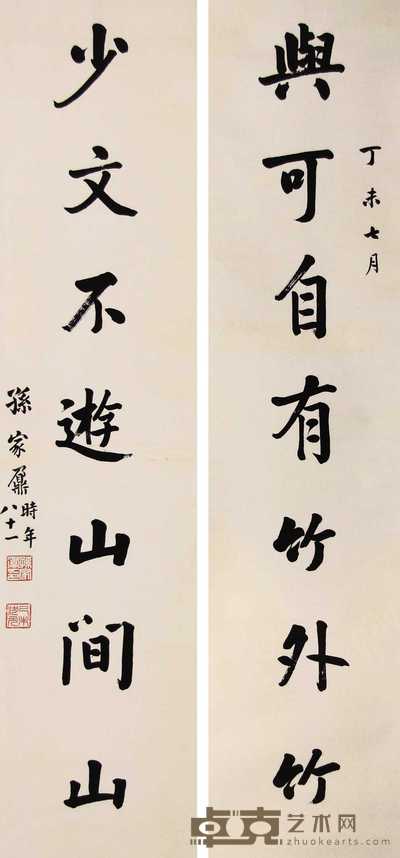 丁未七月
與可自有竹外竹
少文不遊山間山
孫家鼐時年
八十一
卓克艺术网
zhuokearts.com